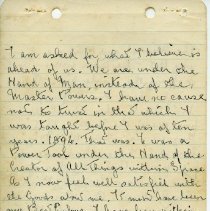 I am asked for what I believe is
ahead of us. We are under the
Hand of Man, instead of the
Master Powers. I have no cause
not to trust in the which I
was taught before I was of ten
years. 1896. That was. I was a
Power Tool under the Hand of the
Creator of All Things within Space
& I now feel well satisfied with
the Goods done me, to men have been